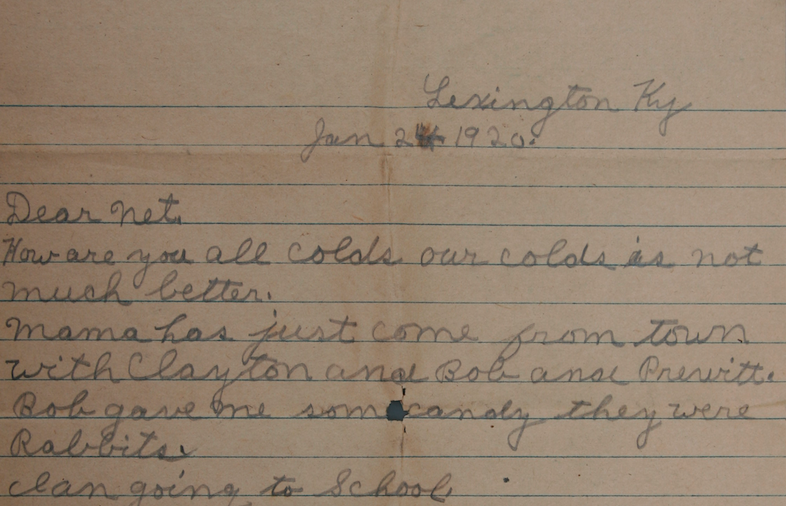 Lexington Ky
Jan 24 1920.
Dear Net.
How are you all colds our colds is not
much better.
Mama has just come from town
with Clayton and Bob and Prewitt.
Bob gave me som candy they were
Rabbits.
going to School